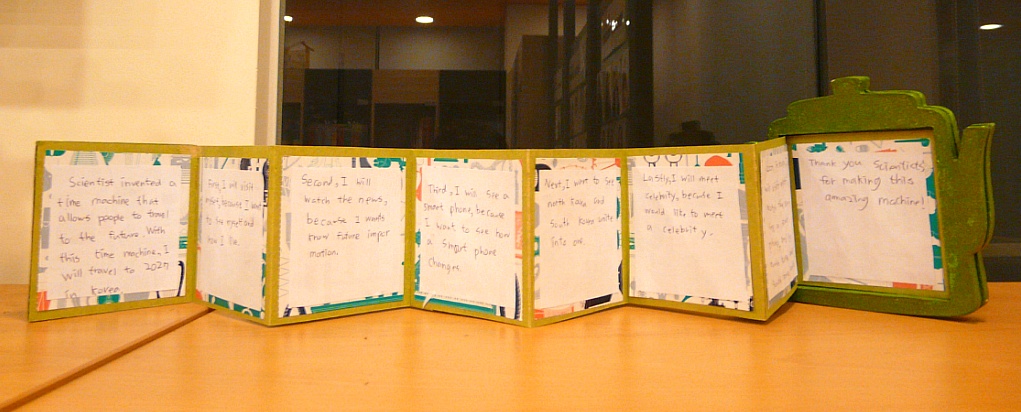 Scientist invented a
time machine that
allows poeple to travel
to the future. With
this time machine, I
will travel to 2027
in korea.
First, I will visit
because I want
to be
how I live.
Second, I will
watch the news,
because I wants
know future infor
mation.
Third, I will see a
smart phone, because
I want to see how
a smart phone
changes.
Next, I want to see
north korea and
South Korea unite
into one.
Lastly, I will meet
celebrity, because I
would like to meet
a celebrity.
Thank you Scientists'
for making this
amazing machine!